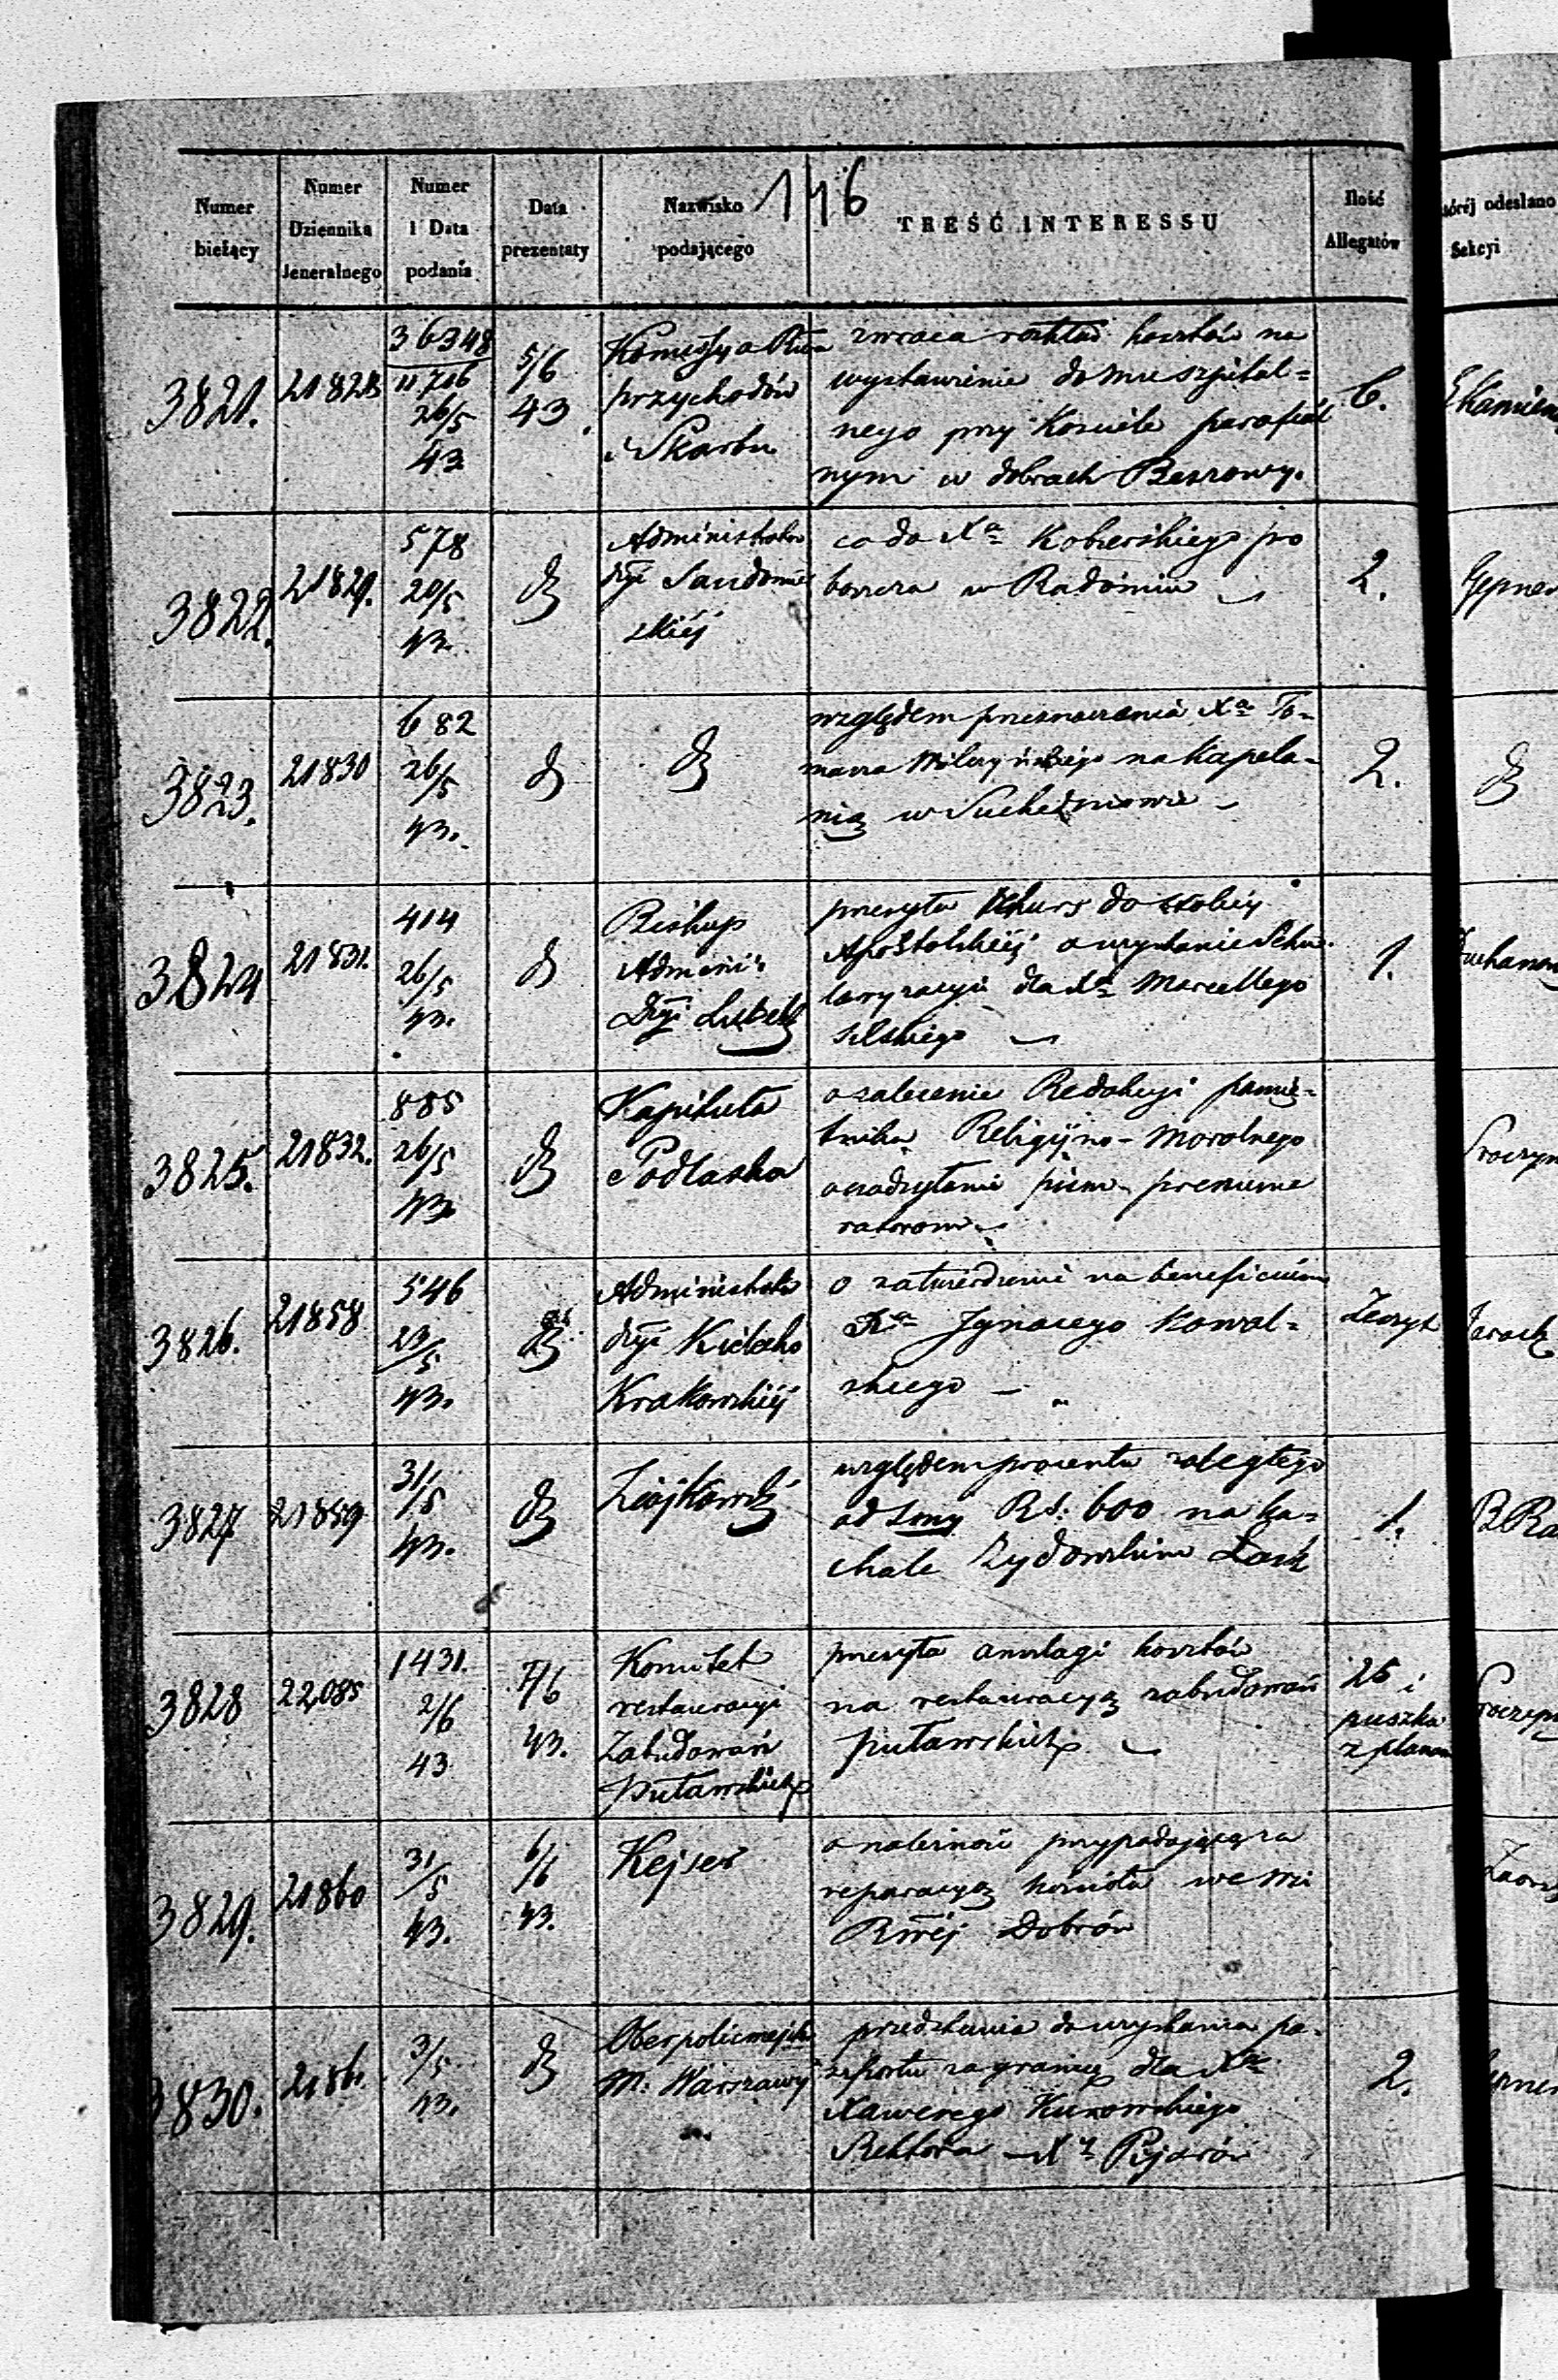 146
Numer bieżący
Numer Dziennika Jeneralnego
Numer i Data podania
Data prezentaty
Nazwisko podającego
TREŚĆ INTERESSU
Ilość Allegatów
której odesłano
Sekcyi
3821.
21828
36348
11716
26/5
43
5/6
43.
Komissya Rzą
przychodów
i Skarbu
zwraca rozkład kosztów na
wystawienie domu szpital=
nego przy Kościele parafial
nym w dobrach
6.
3822.
21829.
578
20/5
43.
Administrator
dyi Sandomier
skiéj
co do Xa Kobierskiego pro
boszcza w Radomiu
2.
3823.
21830
682
26/5
43.
względem przeznaczenia Xa To-
masza na kapela-
nią w Suchedniowie
2.
3824
21831.
414
26/5
43.
Biskup
Admini:
Dyi Lubels
przesyła rekurs do stolicy
Apostolskiéj o uzyskanie Seku
laryzacyi dla Xa Marcellego
1.
3825.
21832.
885
26/5
43
Kapituła
Podlaska
o zalecenie Redakcyi pamię-
tnika Religijno-Moralnego
pism prenume
ratorom
3826.
21858
546
23/5
43.
Administrator
dyi Kielecko
Krakowskiéj
o zatwierdzenie na beneficium
Xa Ignacego Kowal=
skiego
Zeszyt
3827
21859
31/5
43.
względem procentu zaległego
od Smy RS: 600 na ka=
hale Żydowskim Łask
1.
3828
22085
1431.
2/6
43
7/6
43.
Komitet
restauracyi
Zabudowań
Puławskich
przesyła anszlagi kosztów
na restauracyą zabudowań
puławskich
25 i
puszka
z planam
3829.
21860
31/5
43.
6/6
43.
Kejser
o należność przypadającą za
reparacyą kościoła we wsi
Dobrów
3830.
21861.
31/5
43.
Oberpolicmejster
M: Warszawy
przedstawia do uzyskania pa-
szportu zagranicę dla Xa
Xawerego Kurowskiego
Rektora XX Pijarów
2.